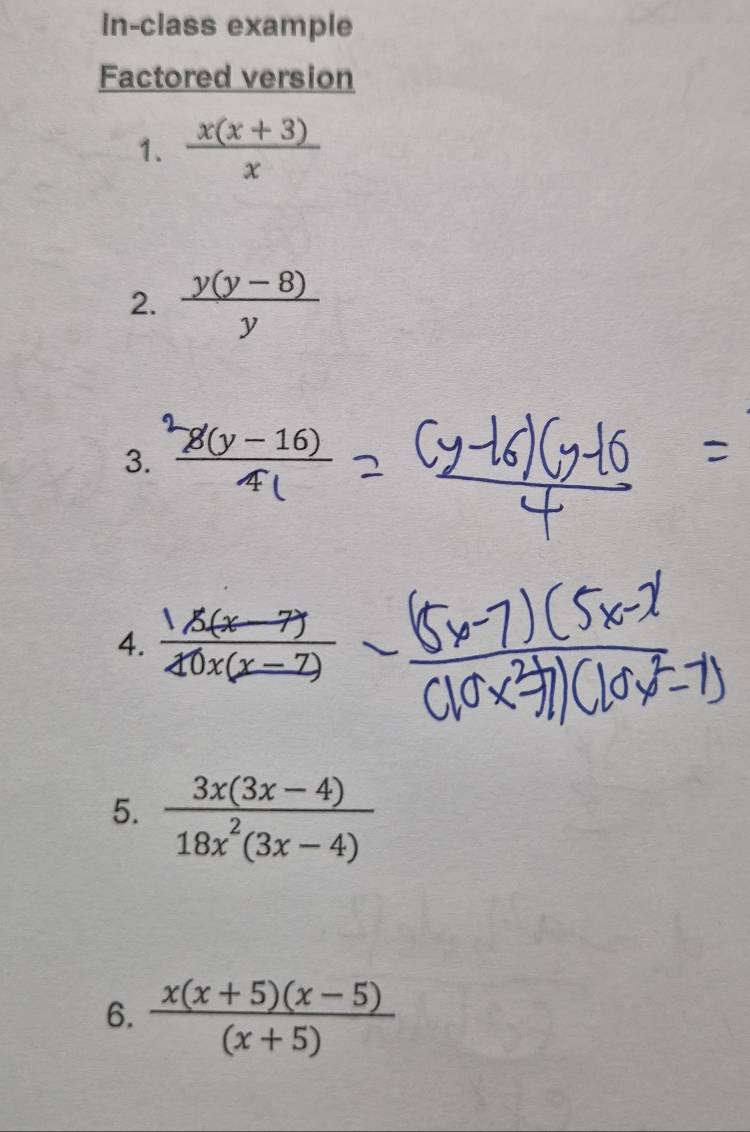 In-class example
Factored version
1. x(x + 3) / x
2. y(y − 8) / y
3. 2 8(y − 16) / 4 1 = (y-16)(y-16 / 4 =
4. 1 5(x − 7) / 10x(x − 7) - (5x-7)(5x- / (10x²-7)(10x²-7)
5. 3x(3x − 4) / 18x²(3x − 4)
6. x(x + 5)(x − 5) / (x + 5)